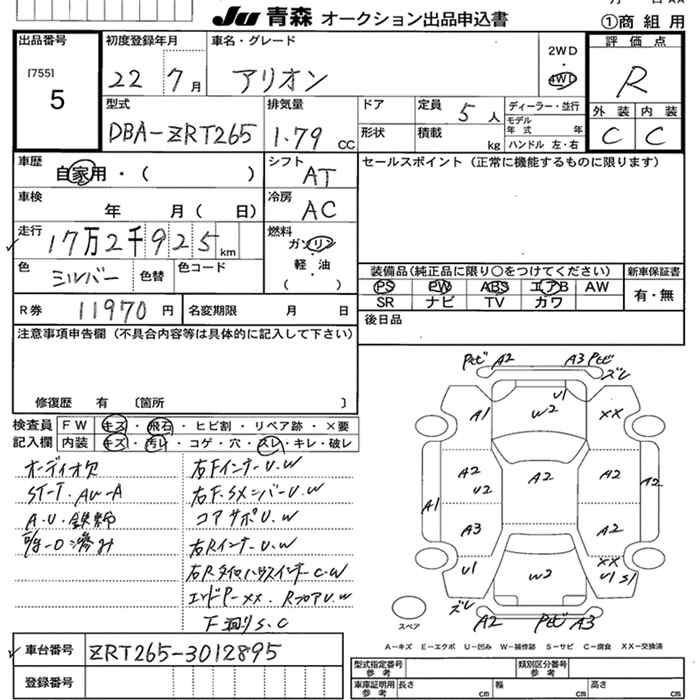 Ju 青森 オークション出品申込書
①商組用
出品番号
[755]
5
初度登録年月
22 7月
車名・グレード
アリオン
2WD
4WD
評価点
R
外装 内装
C C
型式
DBA-ZRT265
排気量
1.79 CC
ドア
形状
定員 5人
積載 kg
ディーラー・並行
モデル年式 年
ハンドル 左・右
車歴
自家用・( )
シフト
AT
セールスポイント (正常に機能するものに限ります)
車検
年 月( 日)
冷房
AC
走行
17万2千925km
燃料
ガソリン
軽・油
( )
色
シルバー
色替
色コード
装備品(純正品に限り○をつけてください)
新車保証書
PS PW ABS エアB AW
SR ナビ TV カワ
有・無
R券 11970円
名変期限 月 日
後日品
注意事項申告欄 (不具合内容等は具体的に記入して下さい)
修復歴 有 〔箇所 〕
検査員記入欄
FW キズ・飛石・ヒビ割・リペア跡・×要
内装 キズ・汚レ・コゲ・穴・スレ・キレ・破レ
オーディオ欠
ST-T・AW-A
右FインナーU.W
右F.SメンバーU.W
コアサポU.W
右RインナーU.W
右RタイヤハウスインナーC.W
エンドP-XX. RフロアU.W
下廻りS.C
PセビA2
A3 Pセビ
ズレ
U1
A1
W2
XX
A2
U2
A2
A2
A2
A1
A3
A2
U1
W2
XX
U1 S1
ズレ
A2
PセビA3
スペア
A-キズ E-エクボ U-凹み W-補修跡 S-サビ C-腐食 XX-交換済
車台番号 ZRT265-3012895
登録番号
型式指定番号 参考
類別区分番号 参考
車庫証明用 参考 長さ cm 幅 cm 高さ cm